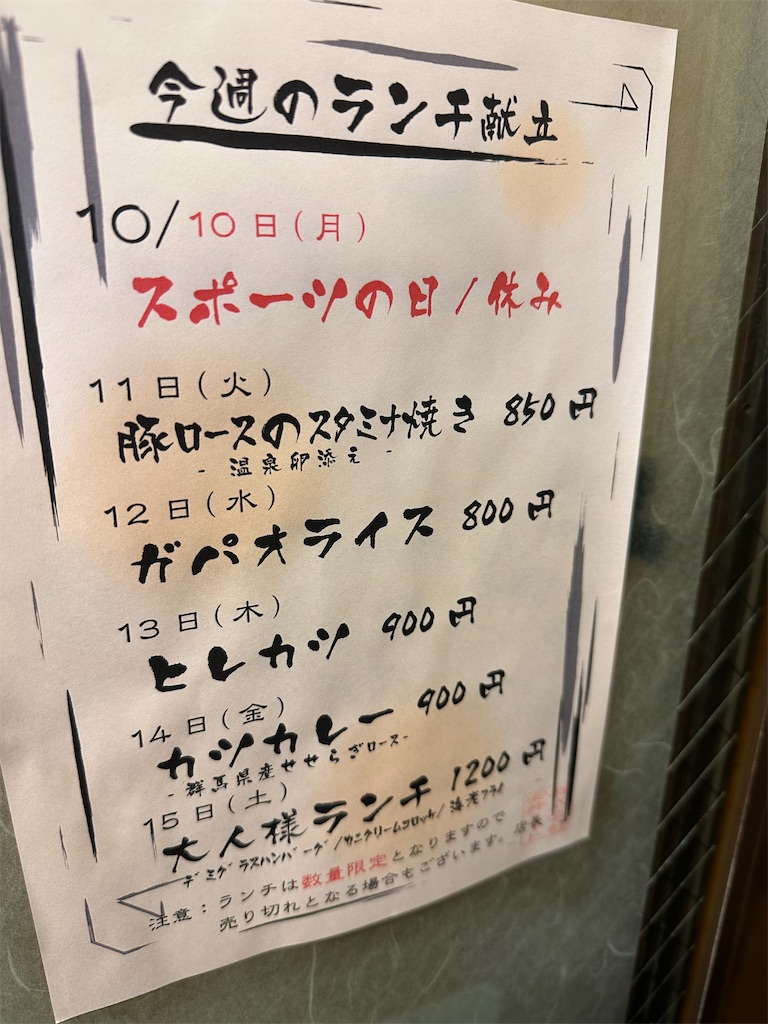 今週のランチ献立
10/10日(月)
スポーツの日/休み
11日(火)
豚ロースのスタミナ焼き 850円
- 温泉卵添え -
12日(水)
ガパオライス 800円
13日(木)
ヒレカツ 900円
14日(金)
カツカレー 900円
-群馬県産せせらぎロース-
15日(土)
大人様ランチ 1200円
デミグラスハンバーグ/カニクリームコロッケ/海老フライ
注意:ランチは数量限定となりますので
売り切れとなる場合もございます。店長